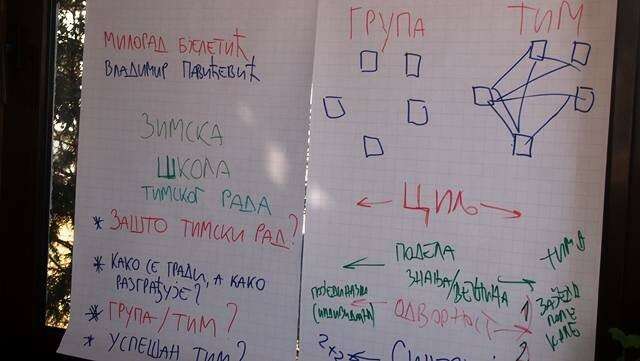 МИЛОРАД БЈЕЛЕТИЋ
ВЛАДИМИР ПАВИЋЕВИЋ
ЗИМСКА
ШКОЛА
ТИМСКОГ РАДА
* ЗАШТО ТИМСКИ РАД?
* КАКО СЕ ГРАДИ, А КАКО
РАЗГРАЂУЈЕ?
* ГРУПА/ТИМ?
* УСПЕШАН ТИМ?
ГРУПА ТИМ
ЦИЉ
ПОДЕЛА
ЗНАЊА/ВЕШТИНА
ОДГОВОРНОСТ